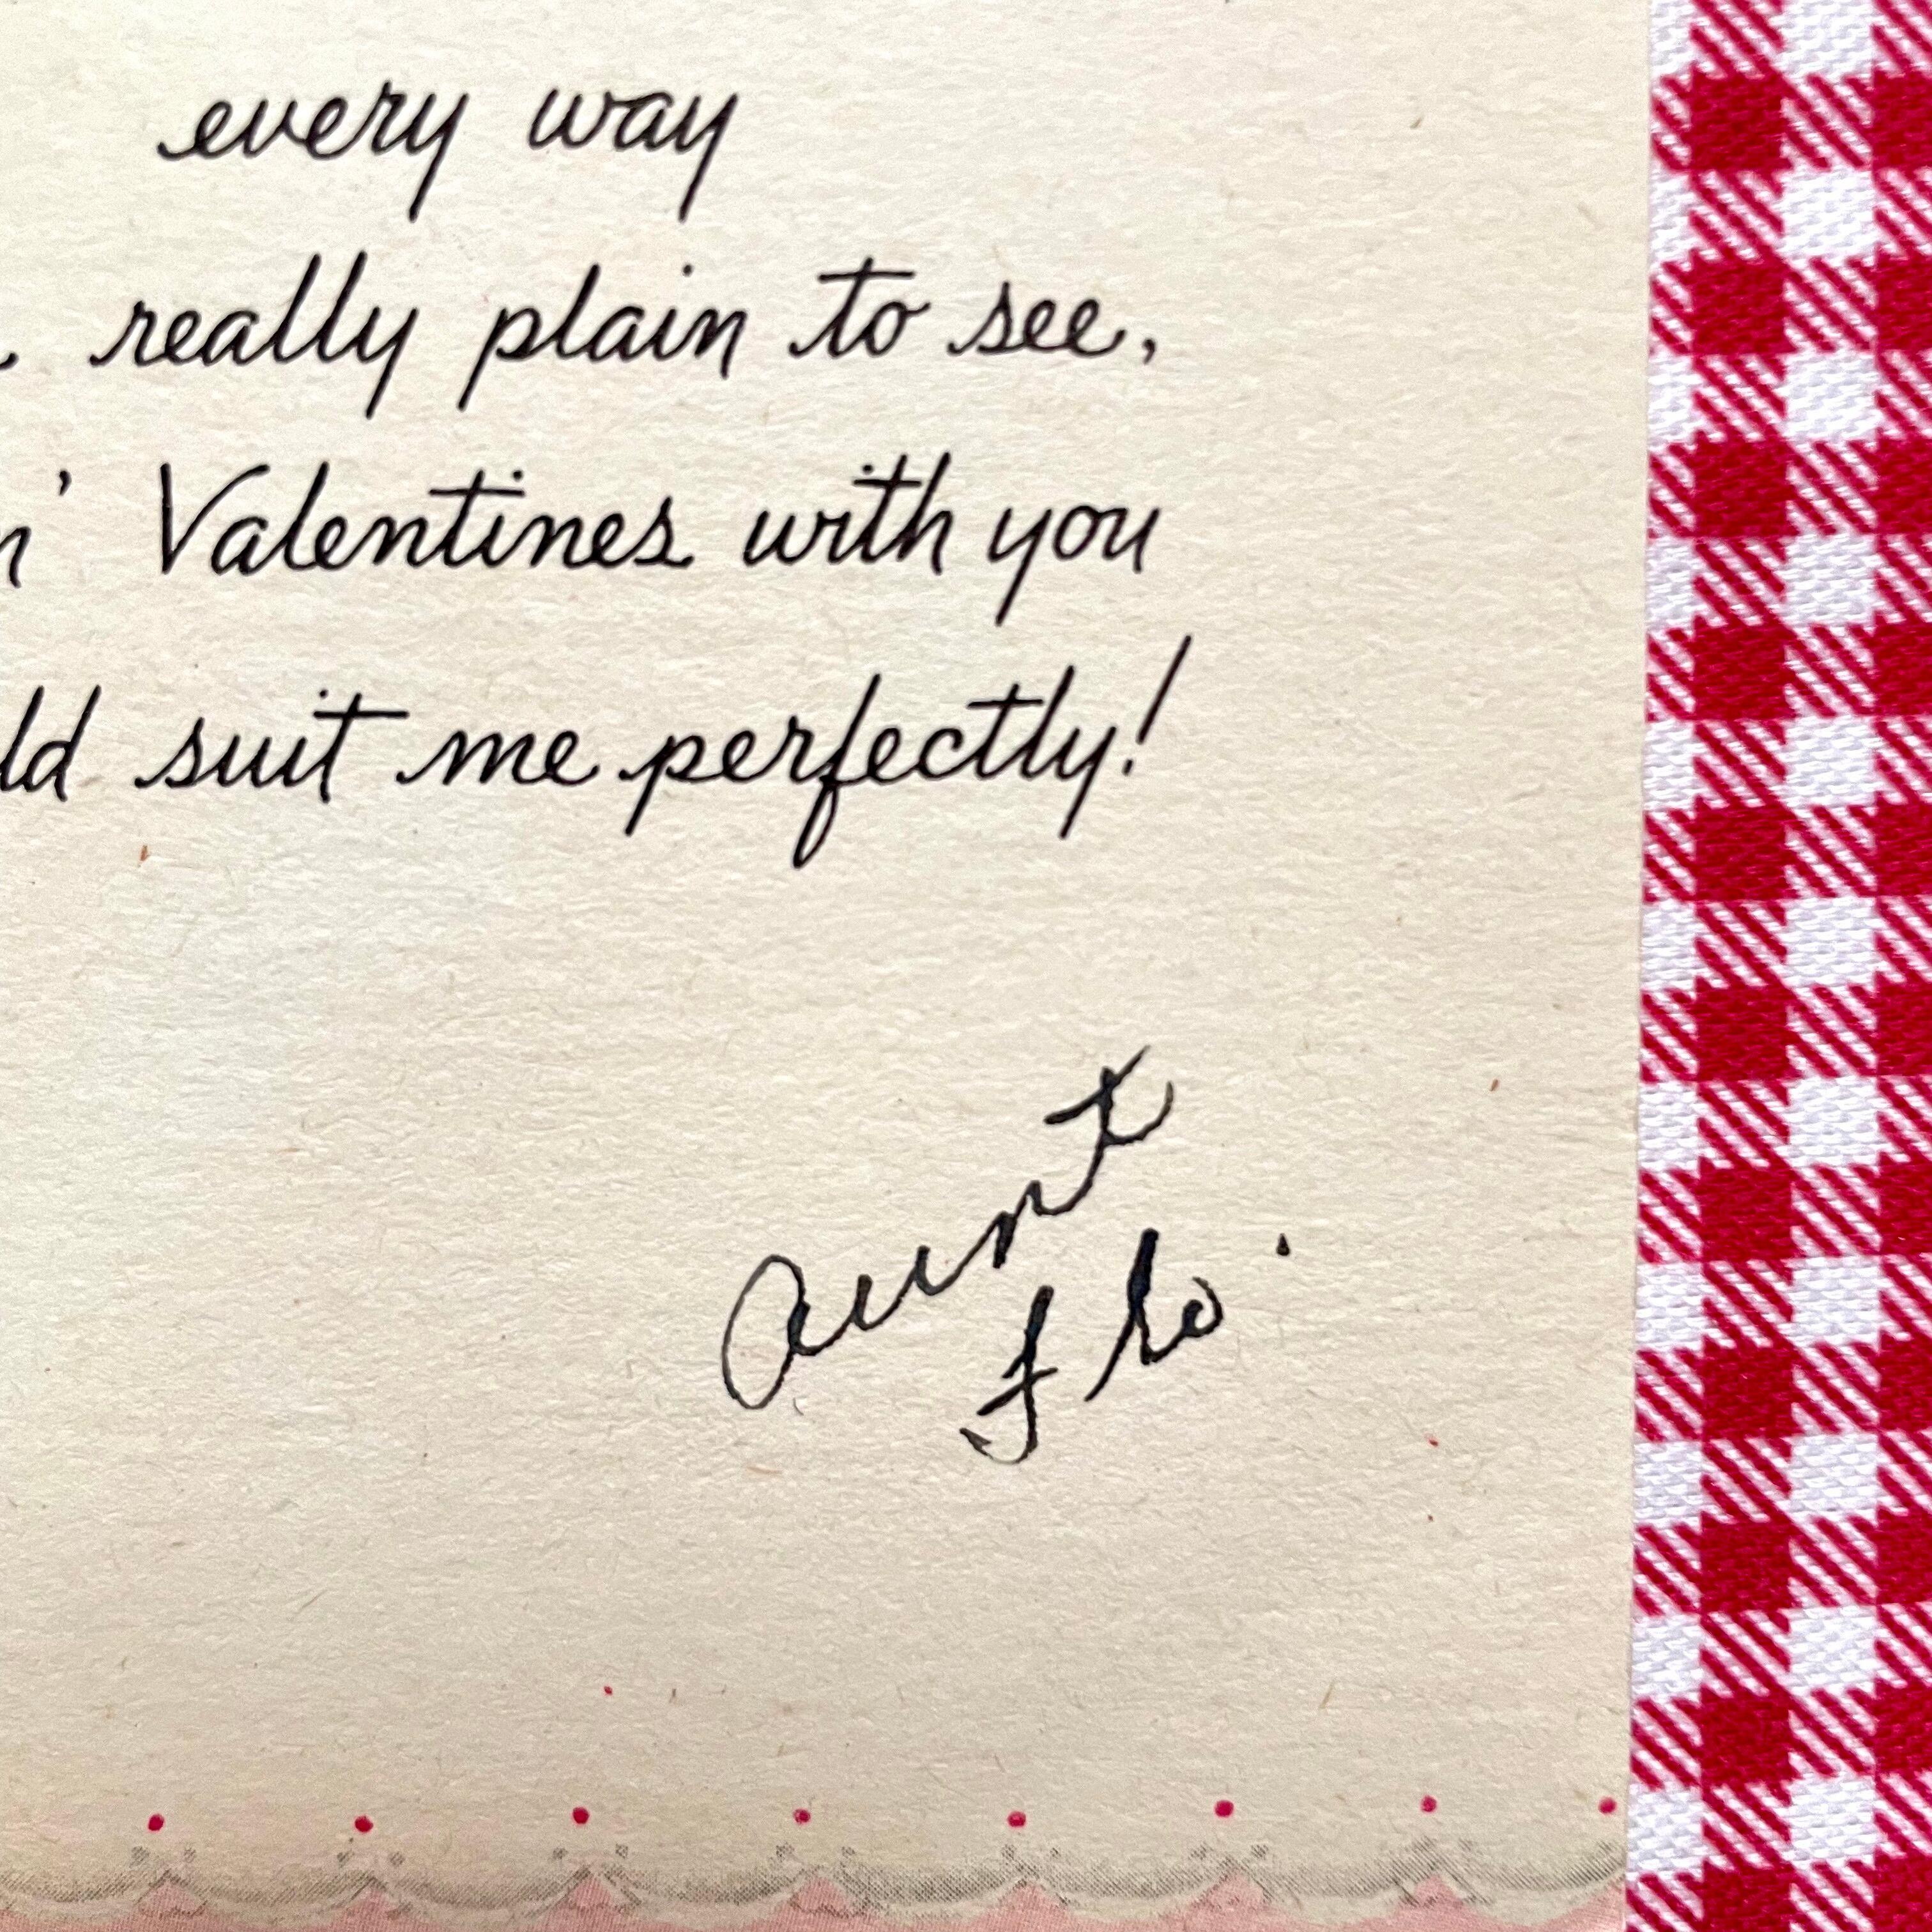 every way
really plain to see,
n' Valentines with you
ld suit me perfectly!
aunt
Flo.